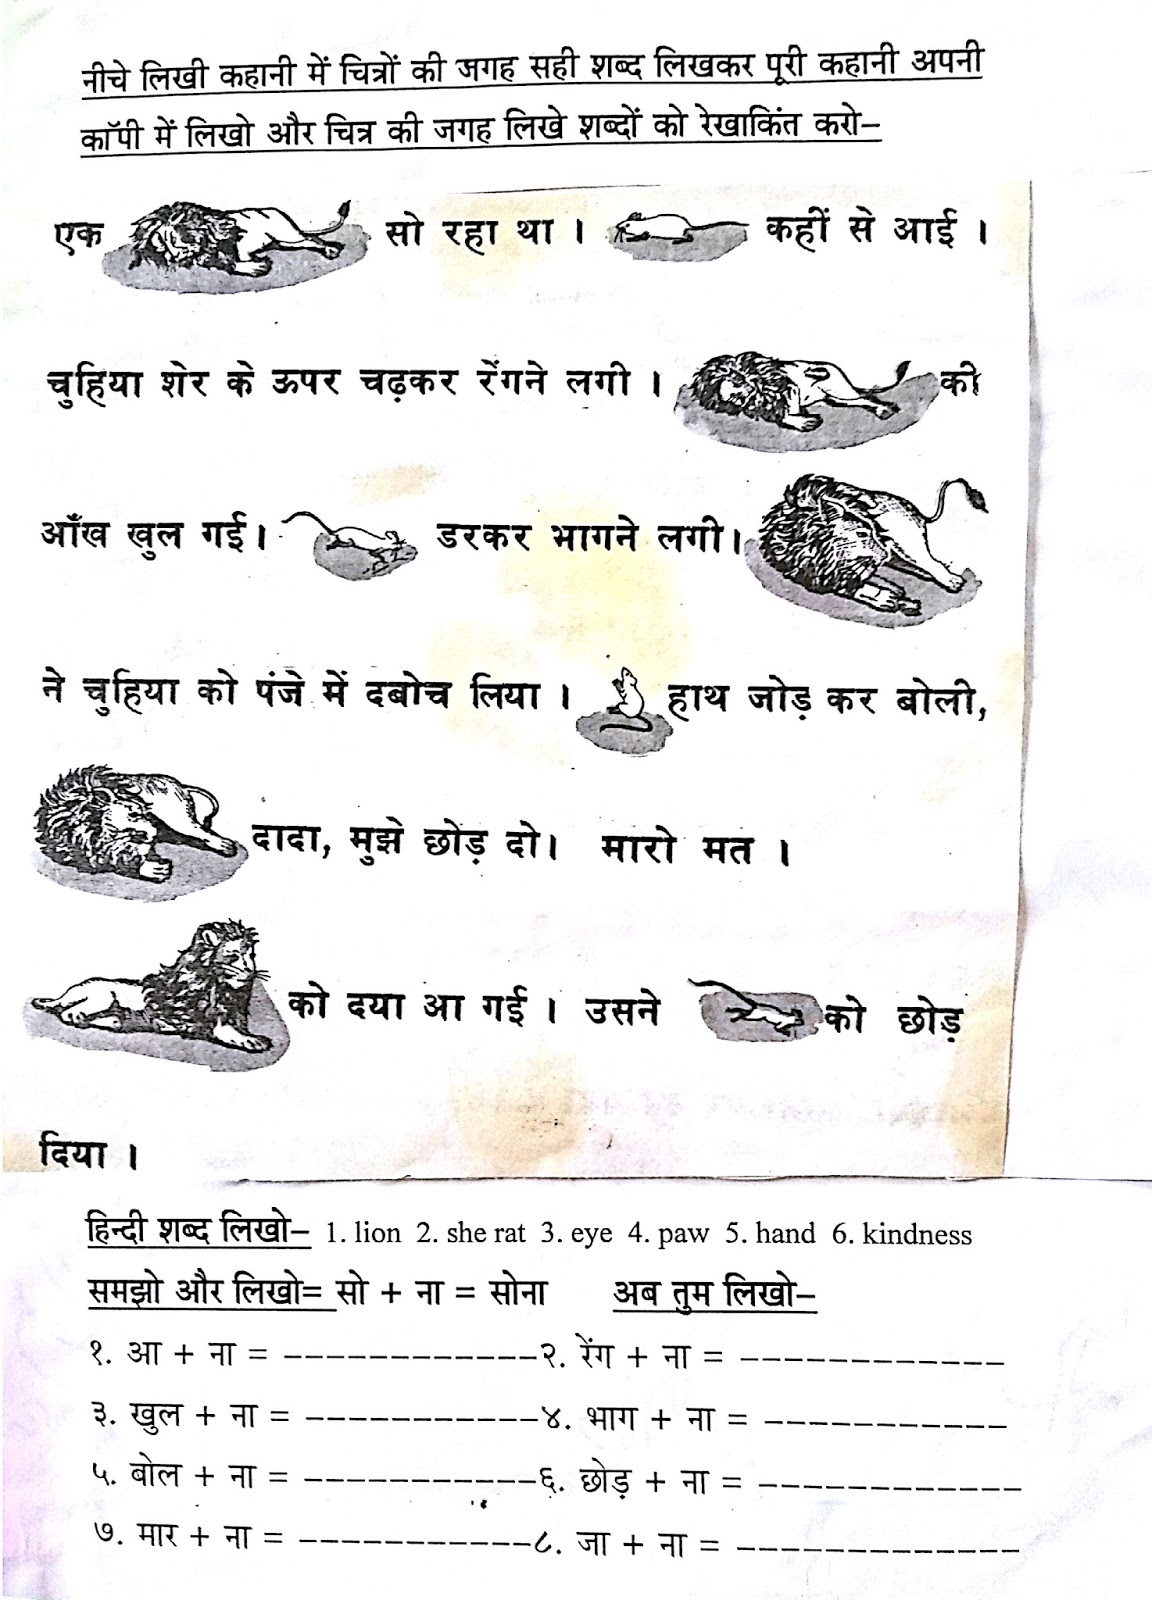 नीचे लिखी कहानी में चित्रों की जगह सही शब्द लिखकर पूरी कहानी अपनी
कॉपी में लिखो और चित्र की जगह लिखे शब्दों को रेखाकिंत करो–
एक सो रहा था । कहीं से आई ।
चुहिया शेर के ऊपर चढ़कर रेंगने लगी । की
आँख खुल गई। डरकर भागने लगी।
ने चुहिया को पंजे में दबोच लिया । हाथ जोड़ कर बोली,
दादा, मुझे छोड़ दो। मारो मत ।
को दया आ गई । उसने को छोड़
दिया ।
हिन्दी शब्द लिखो– 1. lion 2. she rat 3. eye 4. paw 5. hand 6. kindness
समझो और लिखो= सो + ना = सोना अब तुम लिखो–
१. आ + ना = ------------२. रेंग + ना = ------------
३. खुल + ना = -----------४. भाग + ना = -----------
५. बोल + ना = -----------६. छोड़ + ना = ------------
७. मार + ना = -----------८. जा + ना = -------------